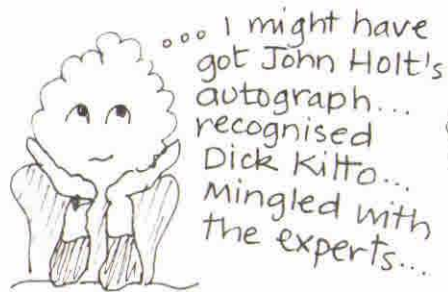 ... I might have
got John Holt's
autograph...
recognised
Dick Kitto...
Mingled with
the experts...